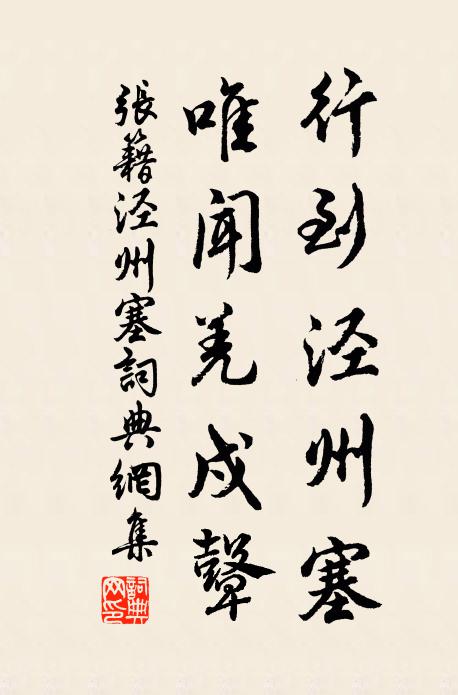 行到泾州塞
唯聞羌戍鼙
張籍泾州塞詞典網集
詞典网印